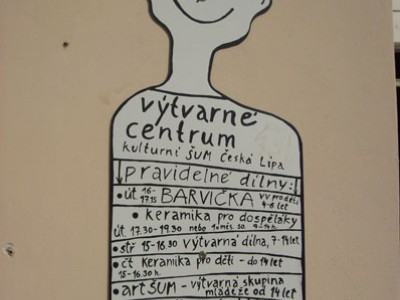 výtvarné
centrum
kulturní ŠUM Česká Lípa
pravidelné dílny:
• út 16-17.15 BARVIČKA vv pro děti 4-8 let
• keramika pro dospěláky
út 17.30-19.30 nebo 1x měs. so.
• stř 15-16.30 výtvarná dílna, 7-14 let
• čt keramika pro děti - do 14 let
15-16.30 h.
• art ŠUM - výtvarná skupina
mládeže od 14 let